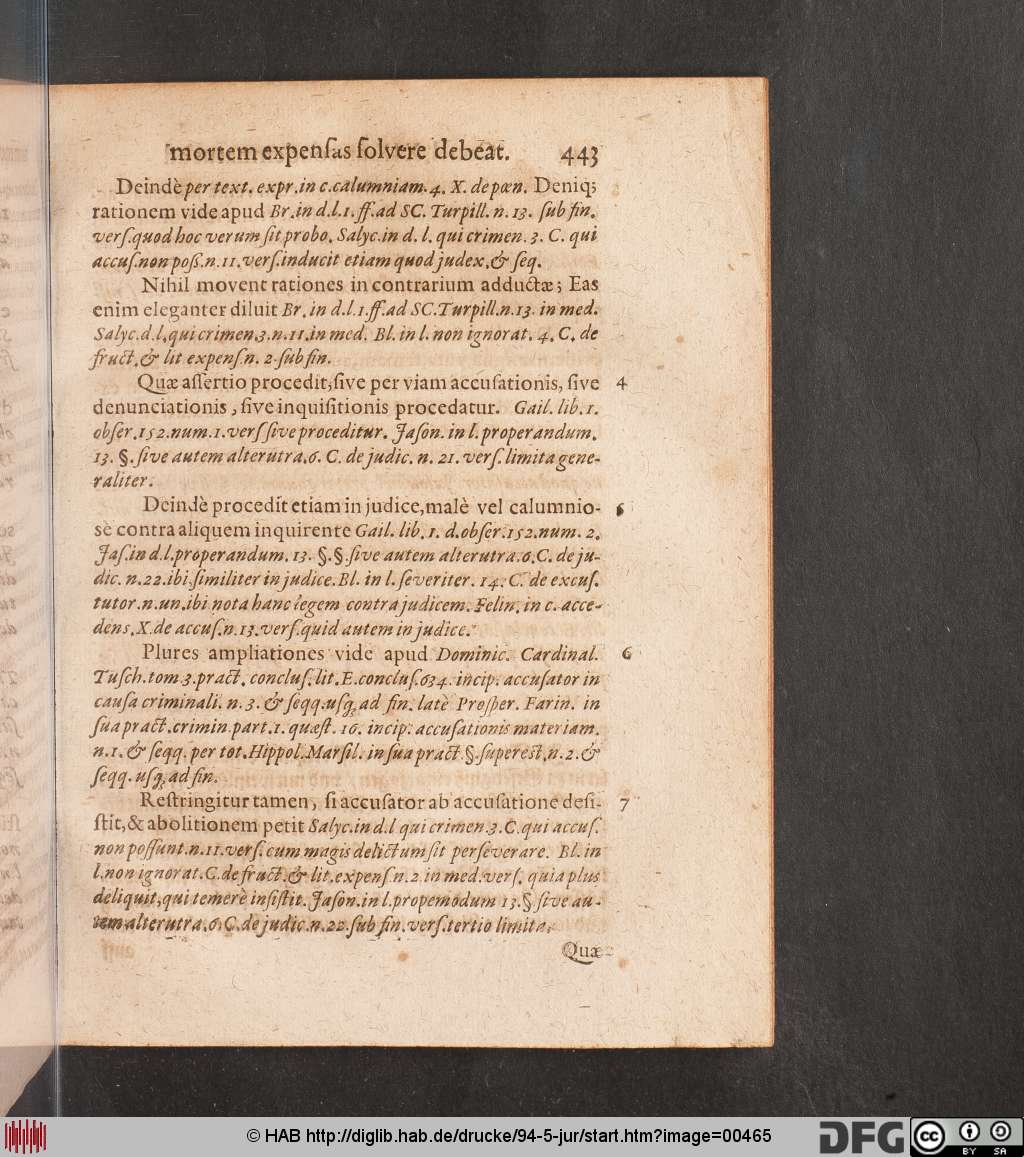 mortem expenſas ſolvere debeat. 443
Deindè per text. expr. in c. calumniam. 4. X. de pœn. Deniq;
rationem vide apud Br. in d. l. 1. ff. ad SC. Turpill. n. 13. ſub fin.
verſ. quod hoc verum ſit probo. Salyc. in d. l. qui crimen. 3. C. qui
accuſ. non poß. n. 11. verſ. inducit etiam quod judex, & ſeq.
Nihil movent rationes in contrarium adductæ; Eas
enim eleganter diluit Br. in d. l. 1. ff. ad SC. Turpill. n. 13. in med.
Salyc. d. l. qui crimen. 3. n. 11. in med. Bl. in l. non ignorat. 4. C. de
fruct. & lit expenſ. n. 2. ſub fin.
Quæ aſſertio procedit, ſive per viam accuſationis, ſive 4
denunciationis, ſive inquiſitionis procedatur. Gail. lib. 1.
obſer. 152. num. 1. verſ ſive proceditur. Jaſon. in l. properandum.
13. §. ſive autem alterutra. 6. C. de judic. n. 21. verſ. limita gene-
raliter.
Deindè procedit etiam in judice, malè vel calumnio-
sè contra aliquem inquirente Gail. lib. 1. d. obſer. 152. num. 2.
Jaſ. in d. l. properandum. 13. §. §. ſive autem alterutra. 6. C. de ju-
dic. n. 22. ibi, ſimiliter in judice. Bl. in l. ſeveriter. 14. C. de excuſ.
tutor. n. un. ibi nota hanc legem contra judicem. Felin. in c. acce-
dens. X. de accuſ. n. 13. verſ. quid autem in judice.
Plures ampliationes vide apud Dominic. Cardinal. 6
Tuſch. tom 3. pract. concluſ. lit. E. concluſ. 634. incip. accuſator in
cauſa criminali. n. 3. & ſeqq. uſq; ad fin. latè Proſper. Farin. in
ſua pract. crimin. part. 1. quæſt. 16. incip. accuſationis materiam.
n. 1. & ſeqq. per tot. Hippol. Marſil. in ſua pract. §. ſupereſt. n. 2. &
ſeqq. uſq; ad fin.
Reſtringitur tamen, ſi accuſator ab accuſatione deſi- 7
ſtit, & abolitionem petit Salyc. in d. l qui crimen. 3. C. qui accuſ.
non poſſunt. n. 11. verſ. cum magis delictum ſit perſeverare. Bl. in
l. non ignorat. C. de fruct. & lit. expenſ. n. 2. in med. verſ. quia plus
deliquit, qui temerè inſiſtit. Jaſon. in l. propemodum 13. § ſive au-
tem alterutra. 6. C. de judic. n. 22. ſub fin. verſ. tertio limita.
Quæ
© HAB http://diglib.hab.de/drucke/94-5-jur/start.htm?image=00465
DFG
cc BY SA